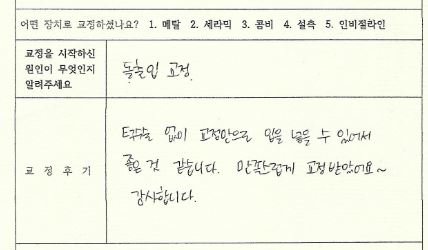 어떤 장치로 교정하셨나요? 1. 메탈 2. 세라믹 3. 콤비 4. 설측 5. 인비절라인
교정을 시작하신
원인이 무엇인지
알려주세요
돌출입 교정.
교 정 후 기
수술 없이 교정만으로 입을 넣을 수 있어서
좋은 것 같습니다. 만족스럽게 교정받았어요~
감사합니다.